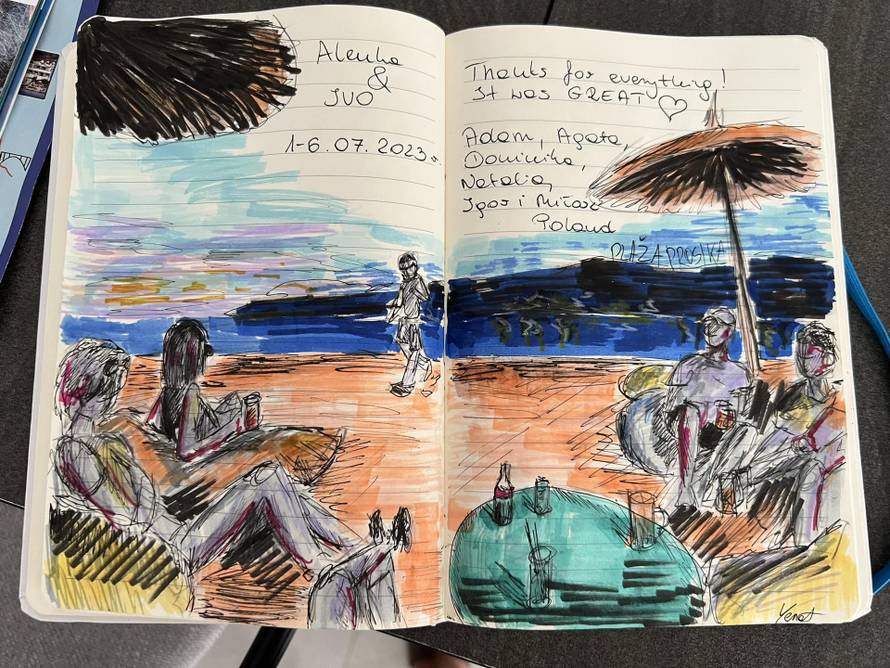 Alenka
&
IVO
1-6.07.2023.
Thanks for everything!
It was GREAT
Adam, Agata,
Dominika,
Natalia,
Igor i Miłosz
Poland
PLAŽA PROSIKA